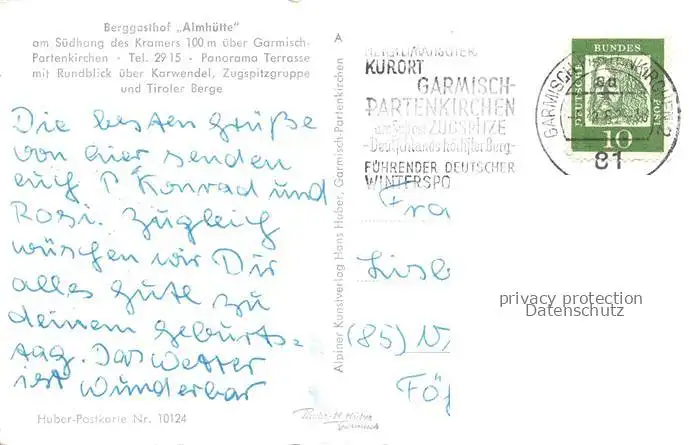 Berggasthof „Almhütte"
am Südhang des Kramers 100 m über Garmisch-
Partenkirchen - Tel. 2915 - Panorama Terrasse
mit Rundblick über Karwendel, Zugspitzgruppe
und Tiroler Berge
Die besten Grüße
von hier senden
euch Konrad und
Rosi. Zugleich
wüschen wir Dir
alles Gute zu
deinem Geburts=
tag. Das Wetter
ist wunderbar
Huber-Postkarte Nr. 10124
A
Alpiner Kunstverlag Hans Huber, Garmisch-Partenkirchen
HEILKLIMATISCHER
KURORT
GARMISCH-
PARTENKIRCHEN
am Fuße der ZUGSPITZE
-Deutschlands höchster Berg-
FÜHRENDER DEUTSCHER
WINTERSPO
GARMISCH-PARTENKIRCHEN 2
81
DEUTSCHE
BUNDES
POST
10
Fra
(85) N
privacy protection
Datenschutz